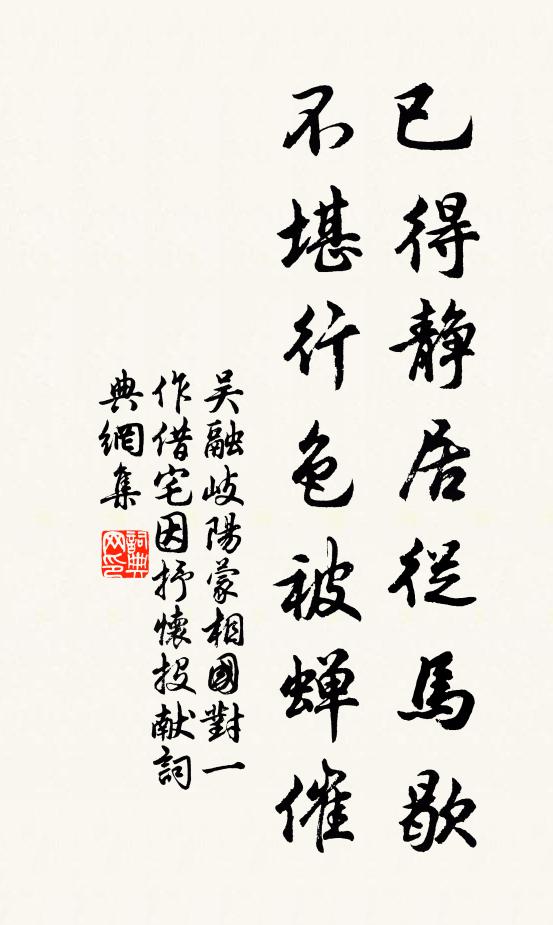 已得静居從馬歇
不堪行色被蝉催
吴融岐陽蒙相國對一
作借宅因抒懷投献詞
典網集
詞典
网印